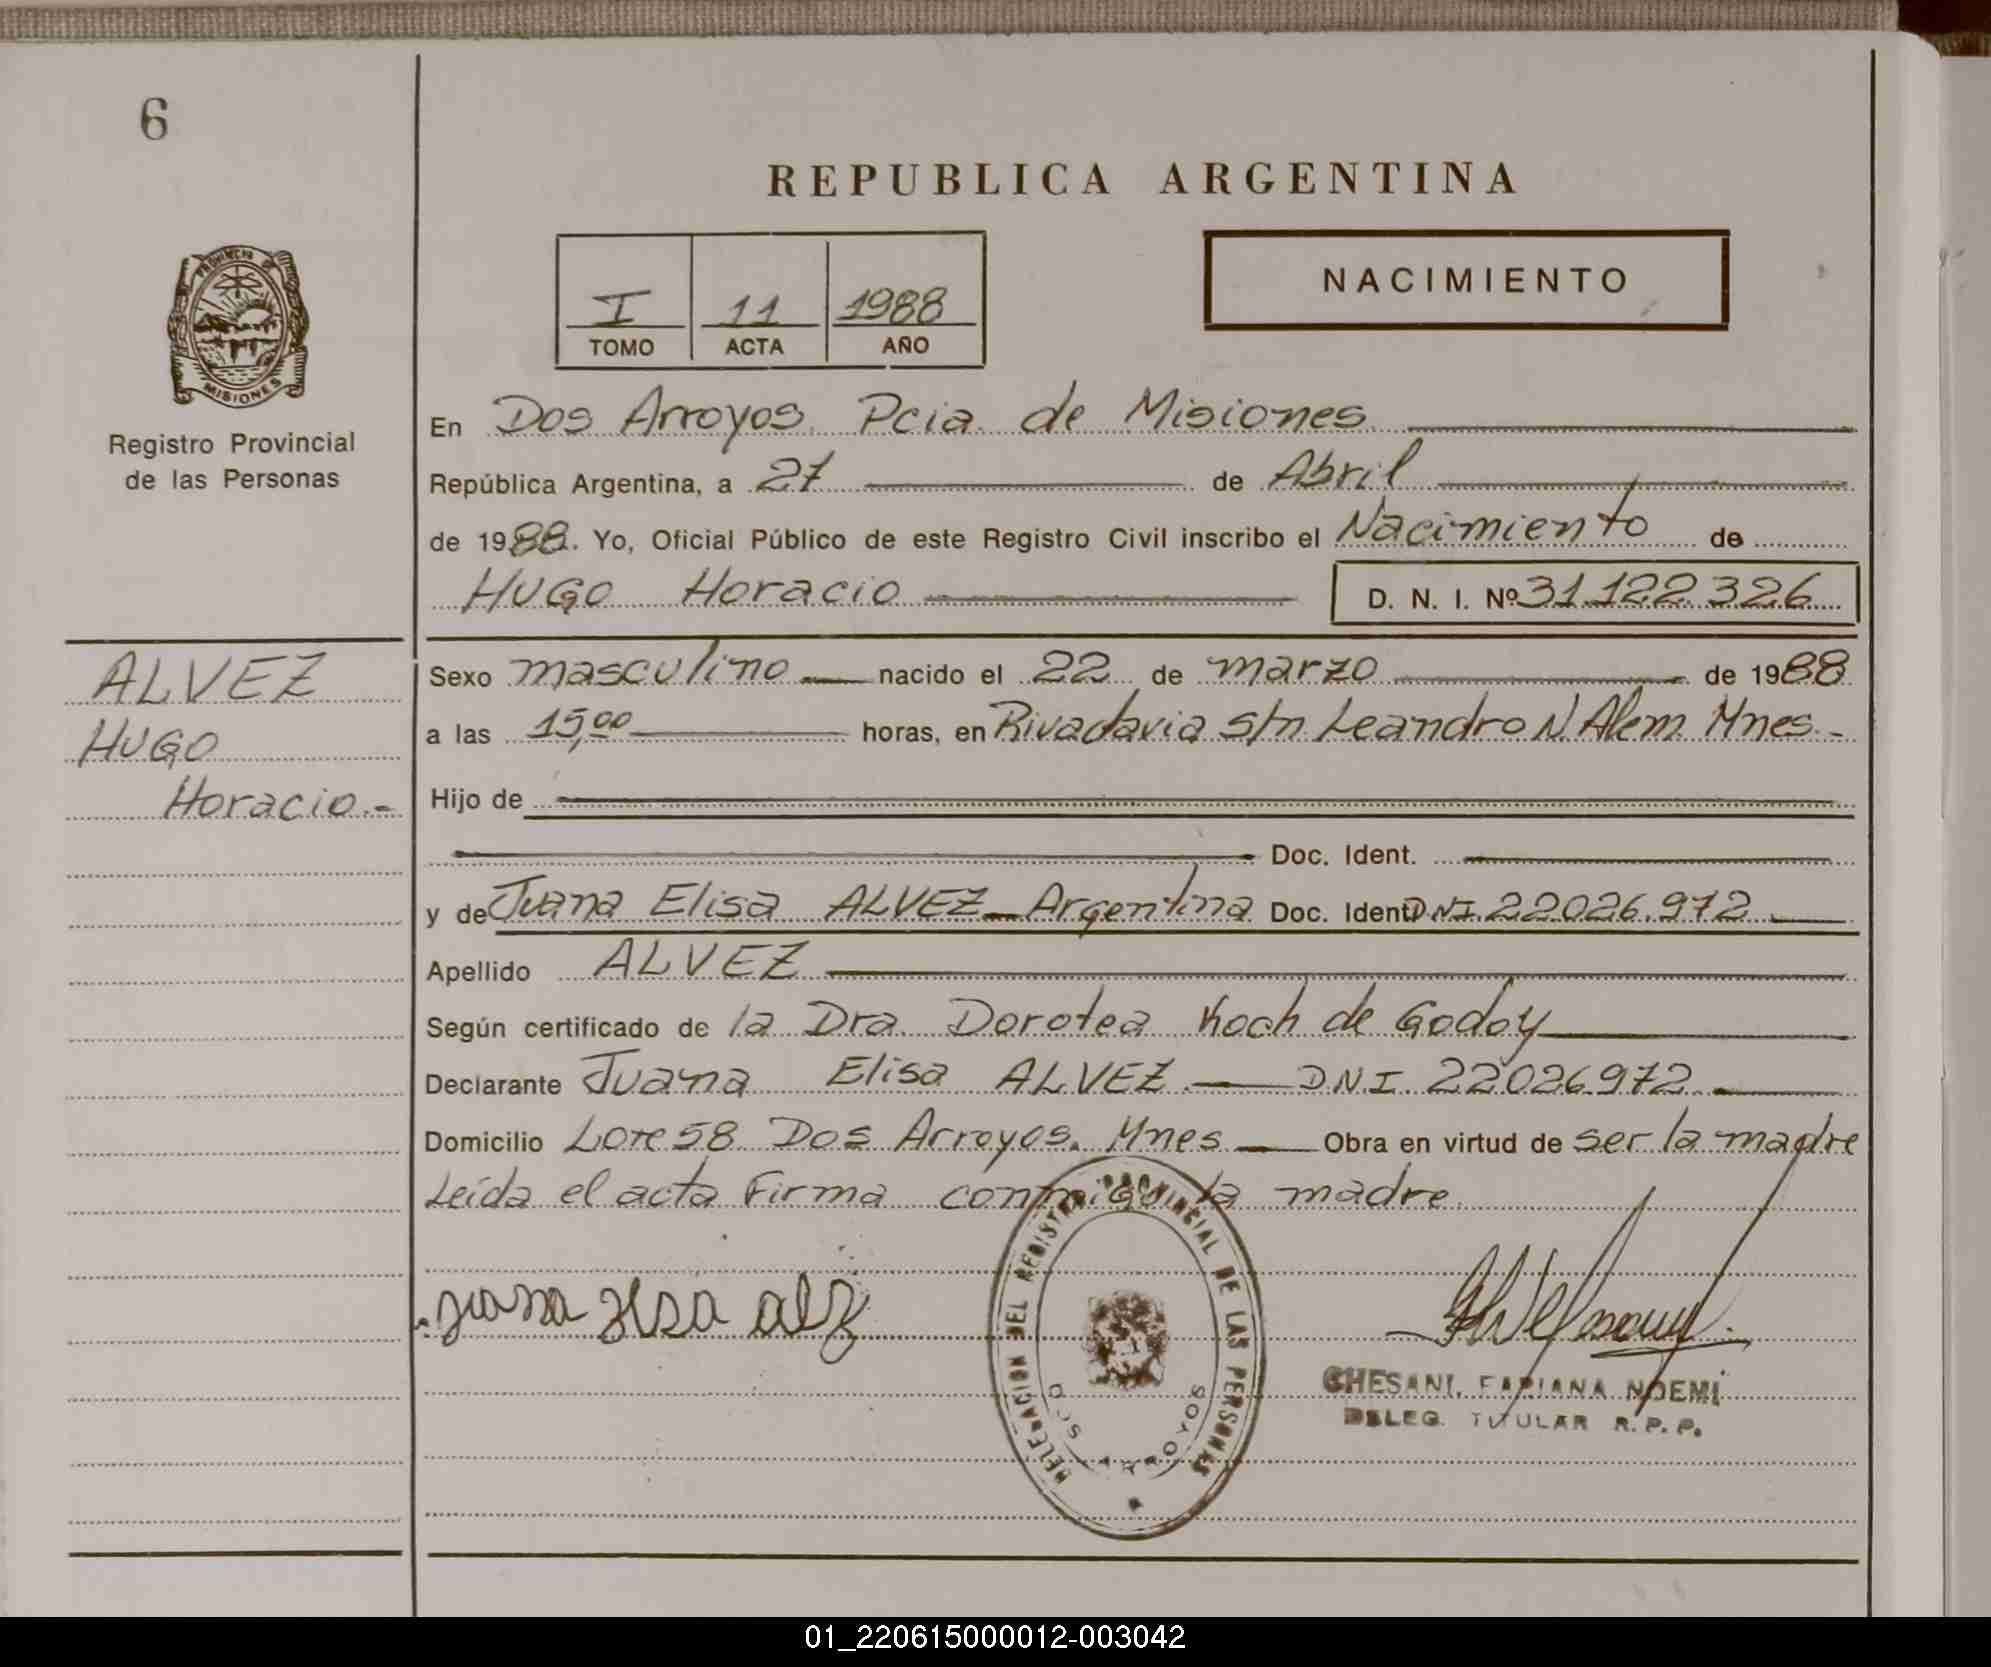 6
REPUBLICA ARGENTINA
I 11 1988
TOMO ACTA AÑO
NACIMIENTO
PROVINCIA DE
MISIONES
Registro Provincial
de las Personas
En Dos Arroyos Pcia de Misiones
República Argentina, a 27 de Abril
de 1988. Yo, Oficial Público de este Registro Civil inscribo el Nacimiento de
HUGO Horacio D. N. I. Nº 31.122.326
ALVEZ
HUGO
Horacio.-
Sexo masculino nacido el 22 de marzo de 1988
a las 15,00 horas, en Rivadavia s/n Leandro N. Alem Mnes -
Hijo de
Doc. Ident.
y de Juana Elisa ALVEZ Argentina Doc. Ident. DNI 22026.972
Apellido ALVEZ
Según certificado de la Dra. Dorotea Koch de Godoy
Declarante Juana Elisa ALVEZ D.N.I. 22026972
Domicilio Lote 58 Dos Arroyos. Mnes Obra en virtud de ser la madre
Leída el acta Firma conmigo la madre.
DELEGACION DEL REGISTRO PROVINCIAL DE LAS PERSONAS
DOS ARROYOS
GHESANI, FABIANA NOEMI
DELEG. TITULAR R.P.P.
01_220615000012-003042